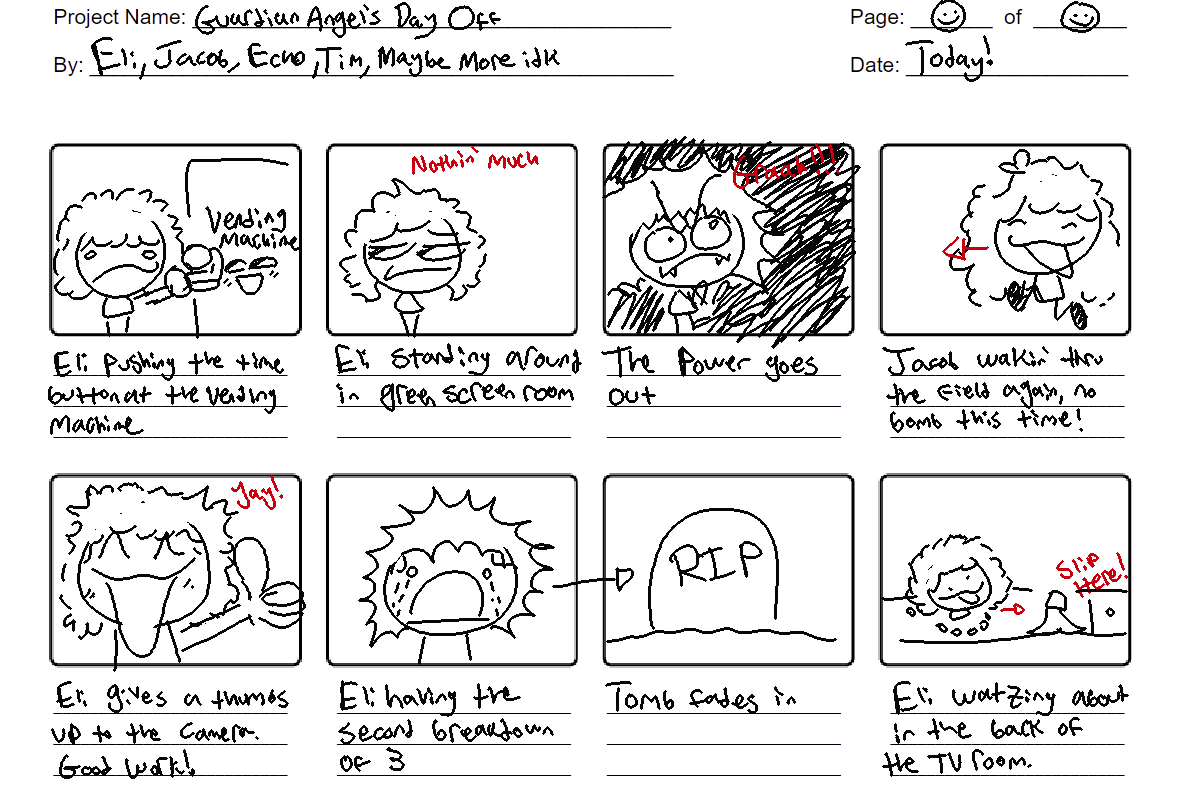 Project Name: Guardian Angel's Day Off
Page: of
By: Eli, Jacob, Echo, Tim, Maybe More idk
Date: Today!
Vending
Machine
Nothin' much
Graah!!!
Eli pushing the time
button at the vending
Machine
Eli standing around
in green screen room
The Power goes
out
Jacob walkin' thru
the field again, no
bomb this time!
Yay!
RIP
Slip
Here!
Eli gives a thumbs
up to the camera.
Good work!
Eli having the
second breakdown
of 3
Tomb fades in
Eli watzing about
in the back of
the TV room.